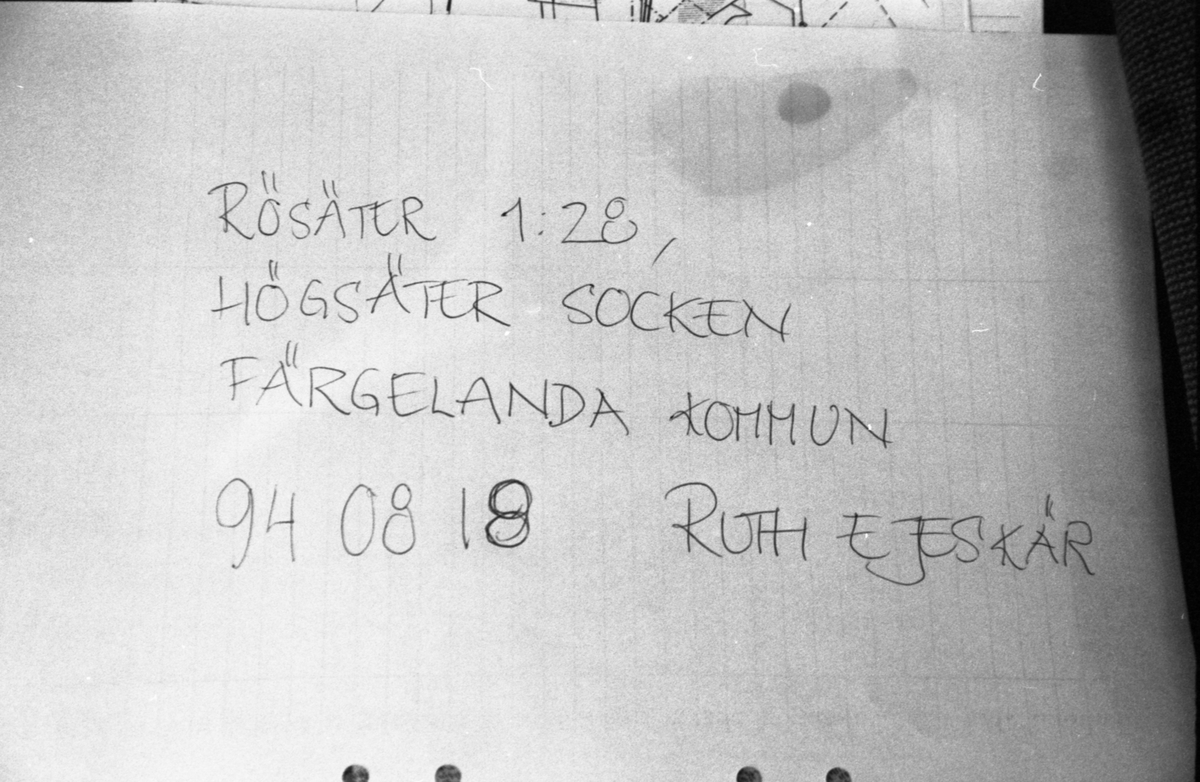 RÖSÄTER 1:28,
HÖGSÄTER SOCKEN
FÄRGELANDA KOMMUN
94 08 18 RUTH E JESKÄR